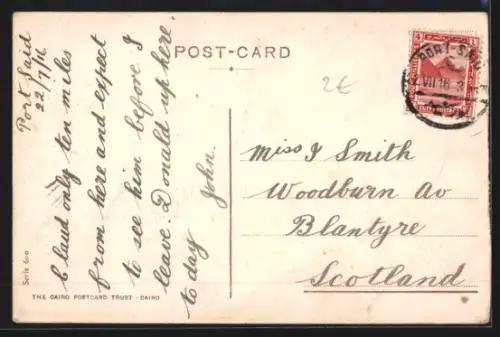 Port Said
22/7/16
Claud only ten miles
from here and expect
to see him before I
leave. Donald up here
to day John.
POST-CARD
2€
PORT-SAID
VII 16
4
4
Miss J Smith
Woodburn Av
Blantyre
Scotland
Serie 600
THE CAIRO POSTCARD TRUST - CAIRO